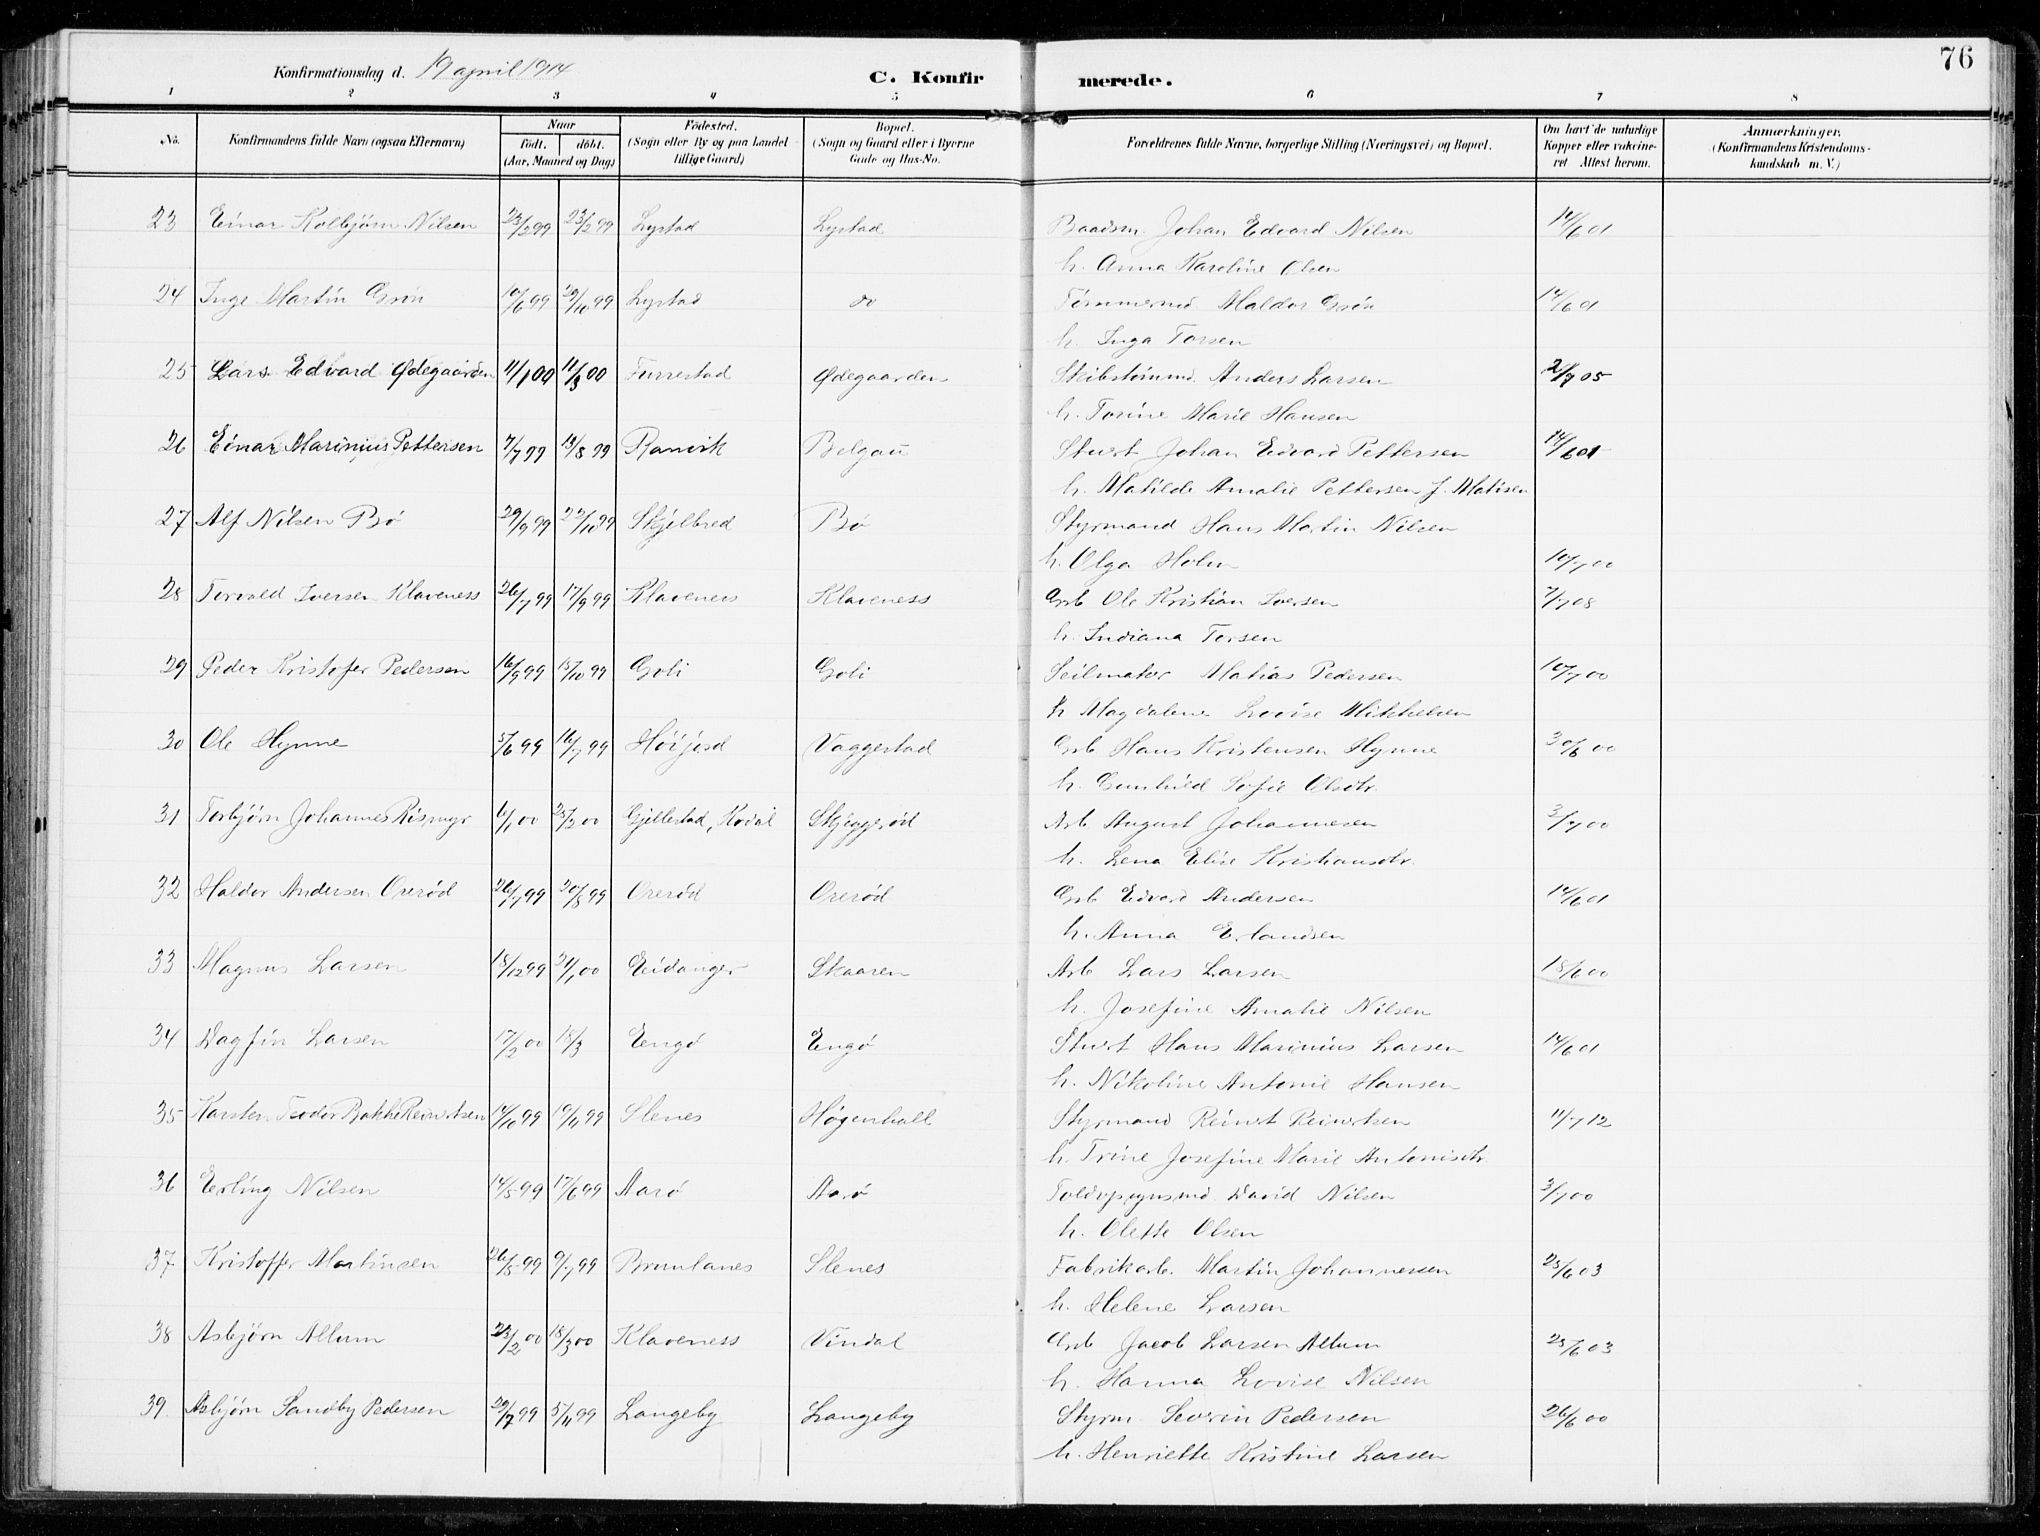 76
Konfirmationsdag d. 19 april 1914
C. Konfirmerede.
1 2 3 4 5 6 7 8
No. Konfirmandens fulde Navn (ogsaa Efternavn) Naar födt. döbt. (Aar, Maaned og Dag) Födested. (Sogn eller By og paa Landet tillige Gaard) Bopæl. (Sogn og Gaard eller i Byerne Gade og Hus-No. Forældrenes fulde Navne, borgerlige Stilling (Næringsvei) og Bopæl. Om havt de naturlige Kopper eller vakcineret Attest herom. Anmærkninger. (Konfirmandens Kristendomskundskab m. V.)
23 Einar Kolbjørn Nilsen 23/2 99 23/2 99 Lystad Lystad Baadsm. Johan Edvard Nilsen 14/6 01
h. Anna Karoline Olsen
24 Inge Martin Grøn 10/6 99 29/10 99 Lystad do Tømmermd. Haldor Grøn 14/6 01
h. Inga Torsen
25 Lars Edvard Ødegaarden 11/1 00 11/3 00 Furrestad Ødegaarden Skibstømmd. Anders Larsen 21/7 05
h. Torine Marie Hansen
26 Einar Marinius Pettersen 7/7 99 13/8 99 Ranvik Belgau Stuert Johan Edvard Pettersen 14/6 01
h. Matilde Amalie Pettersen f. Matisen
27 Alf Nilsen Bø 29/9 99 22/10 99 Skjelbred Bø Styrmand Hans Martin Nilsen
h. Olga Holm 10/7 00
28 Torvald Iversen Klaveness 26/7 99 17/9 99 Klaveness Klaveness Arb Ole Kristian Iversen 7/7 08
h. Indiana Torsen
29 Peder Kristofer Pedersen 16/9 99 15/10 99 Goli Goli Seilmaker Matias Pedersen 10/7 00
h Magdalene Lovise Mikkelsen
30 Ole Hynne 5/6 99 16/7 99 Høijord Vaggestad Arb Hans Kristensen Hynne 30/6 00
h. Gunhild Sofie Olsdtr.
31 Torbjørn Johannes Rismyr 6/1 00 25/2 00 Gjellestad, Kodal Skjeggerød Arb August Johannesen 3/7 00
h. Lena Elise Kristiansdtr.
32 Haldor Andersen Orerød 26/7 99 20/8 99 Orerød Orerød Arb Edvard Andersen 14/6 01
h. Anna Erlandsen
33 Magnus Larsen 18/12 99 21/1 00 Eidanger Skaaren Arb Lars Larsen 18/6 00
h. Josefine Amalie Nilsen
34 Dagfin Larsen 17/2 00 18/3 Engø Engø Stuert Hans Marinius Larsen 14/6 01
h. Nikoline Antonie Hansen
35 Karsten Teodor Bakke Reinertsen 14/10 99 19/11 99 Slenes Høgenhall Styrmand Reinert Reinertsen 11/7 12
h. Trine Josefine Marie Antonisdtr.
36 Erling Nilsen 14/5 99 17/6 99 Aarø Aarø Toldopsynsmd. David Nilsen 3/7 00
h. Olette Olsen
37 Kristoffer Martinsen 26/5 99 9/7 99 Brunlanes Slenes Fabrikarb. Martin Johannessen 25/6 03
h. Helene Larsen
38 Asbjørn Allum 23/2 00 18/3 00 Klaveness Vindal Arb Jacob Larsen Allum 25/6 03
h. Hanna Lovise Nilsen
39. Asbjørn Sandby Pedersen 29/7 99 5/11 99 Langeby Langeby Styrm. Severin Pedersen 26/6 00
h. Henriette Kristine Larsen